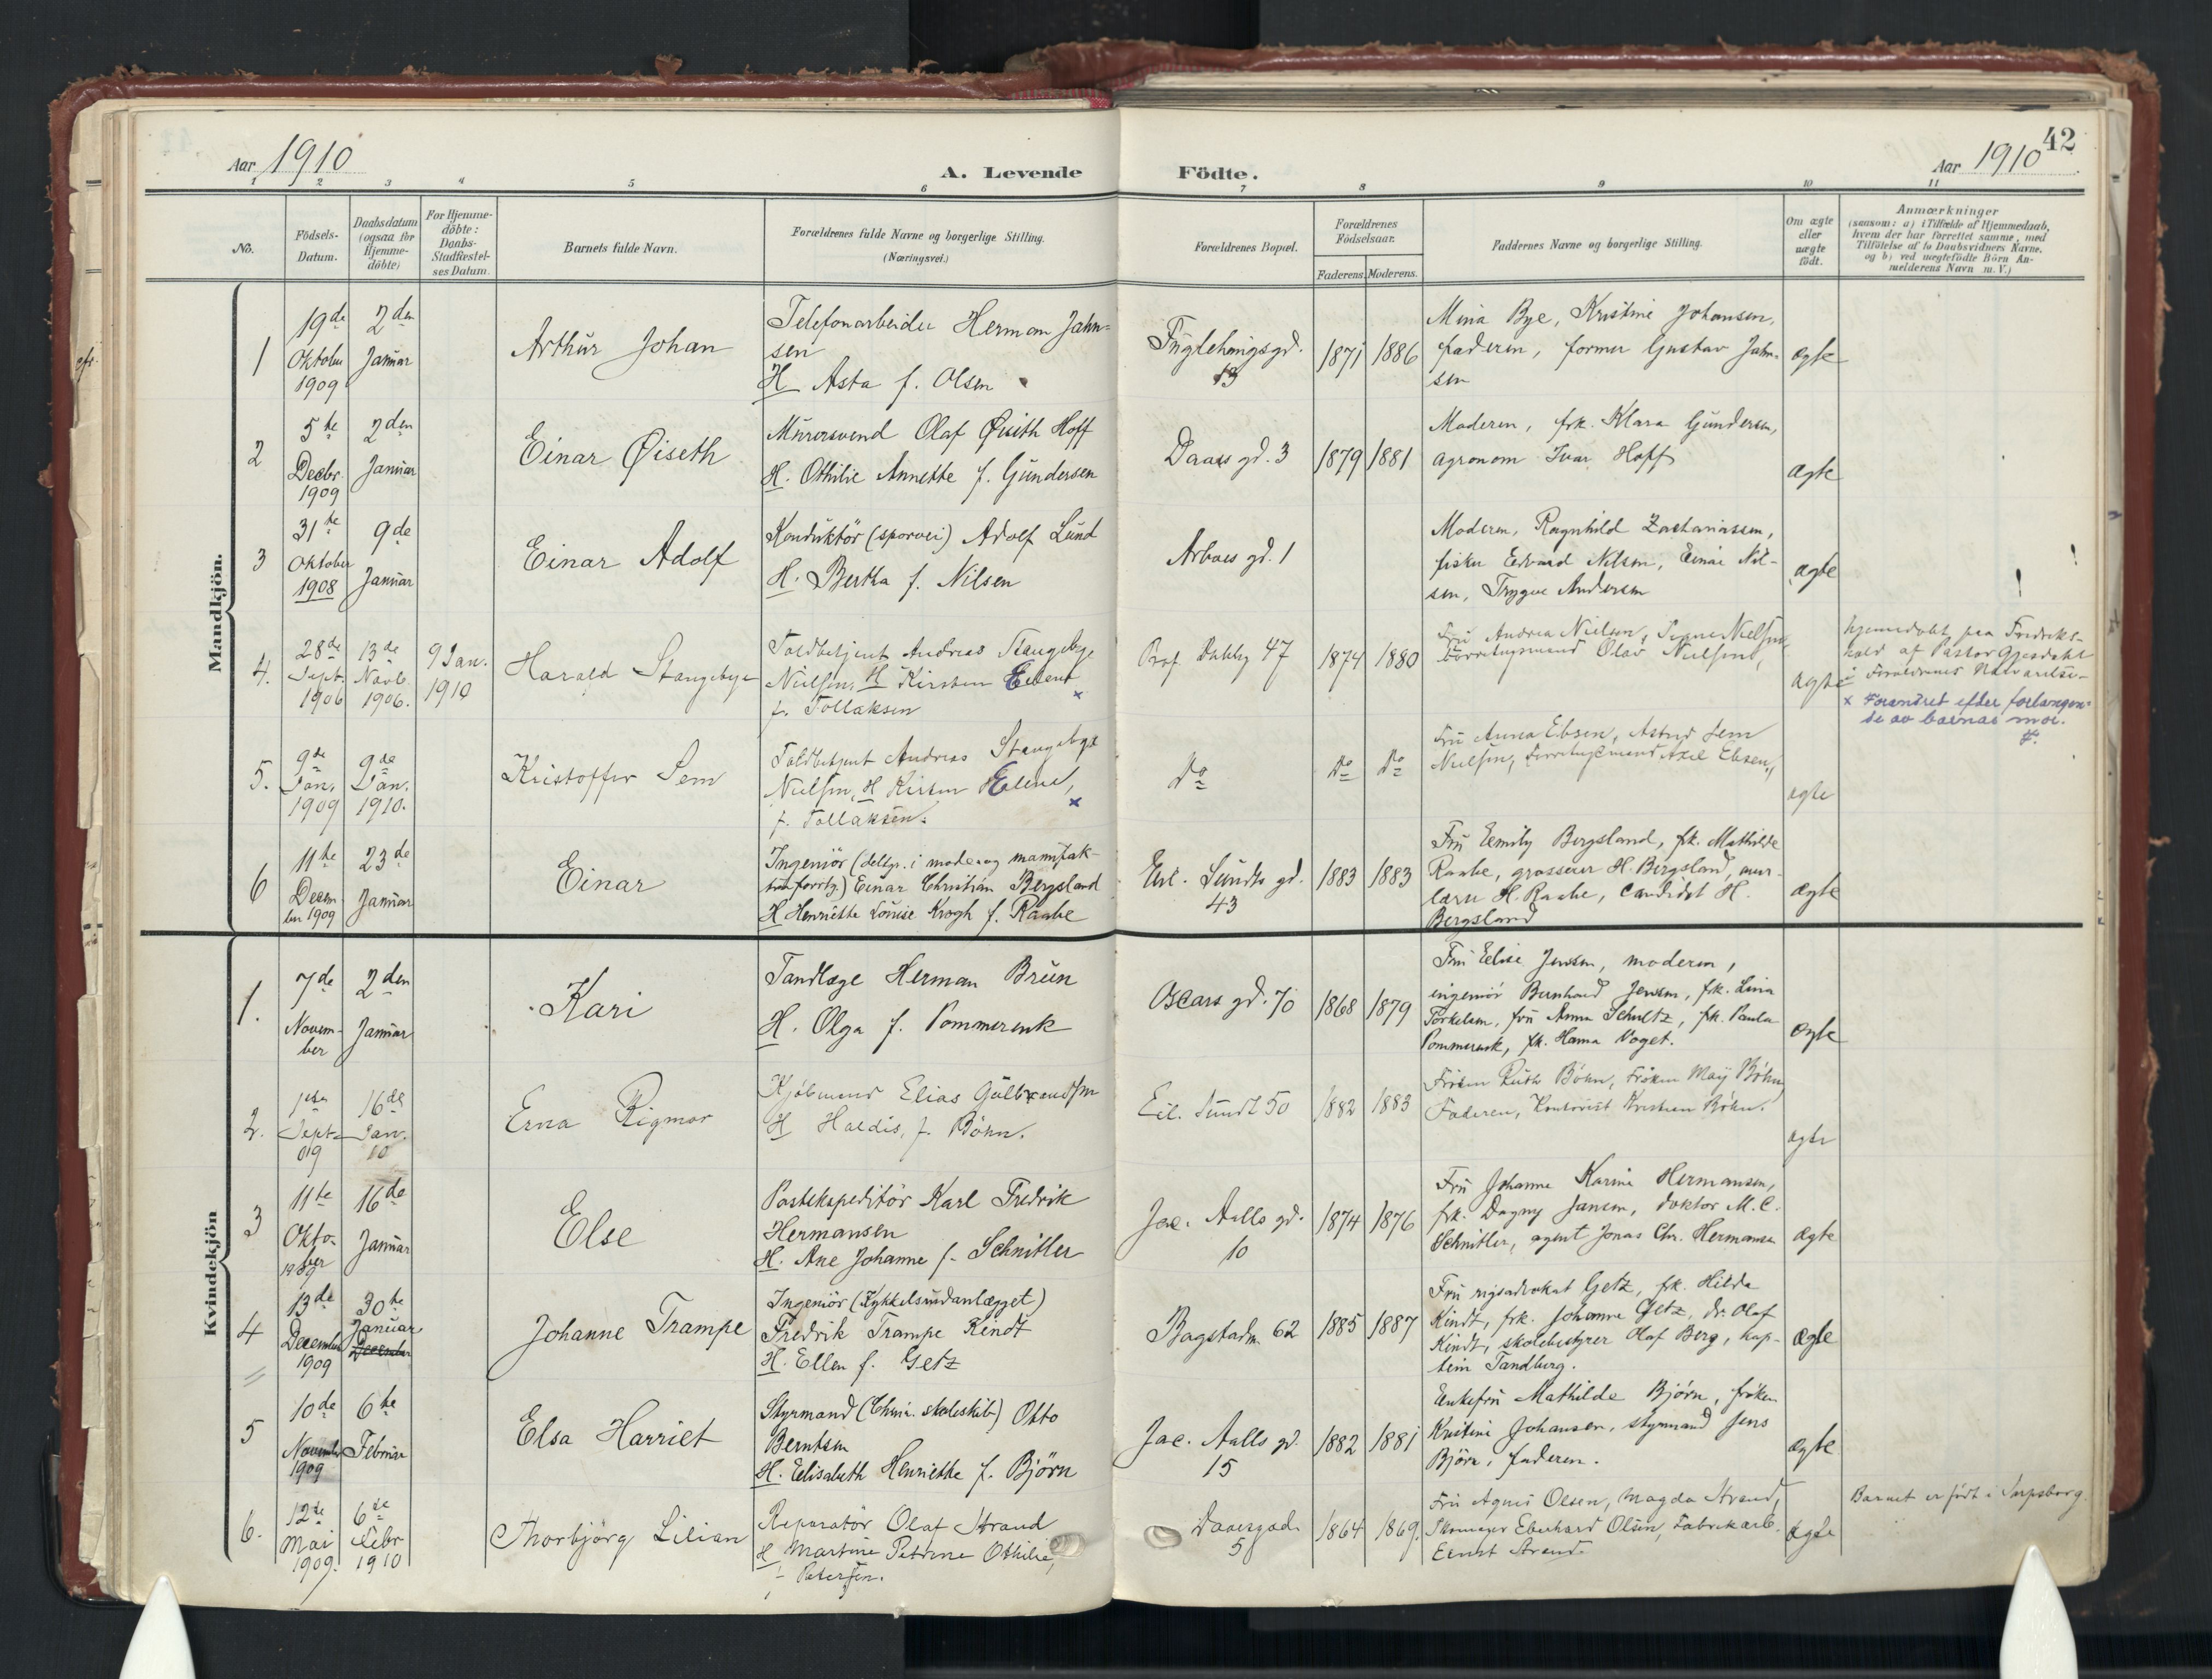 42
Aar 1910
A. Levende
Födte.
Aar 1910
1 2 3 4 5 6 7 8 9 10 11
No.
Födsels-
Datum.
Daabsdatum
(ogsaa for
Hjemme-
döbte)
For Hjemme-
döbte:
Daabs-
Stadfæstel-
ses Datum.
Barnets fulde Navn.
Forældrenes fulde Navne og borgerlige Stilling.
(Næringsvei.)
Forældrenes Bopæl.
Forældrenes
Födselsaar.
Faderens. Moderens.
Faddernes Navne og borgerlige Stilling.
Om ægte
eller
uægte
födt.
Anmærkninger
(saasom: a) i Tilfælde af Hjemmedaab,
hvem der har forrettet samme, med
Tilföielse af to Daabsvidners Navne,
og b) ved uægtefödte Börn An-
melderens Navn m. V.)
Mandkjön.
1
19de
Oktober
1909
2den
Januar
Arthur Johan
Telefonarbeider Herman Jahn-
sen
H Asta f. Olsen
Fuglehaugsgd.
13
1871 1886
Mina Bye, Kristine Johansen,
faderen, former Gustav Jahn-
sen
ægte
2
5te
Decbr.
1909
2den
Januar
Einar Øiseth
Murersvend Olaf Øiseth Hoff
H. Othilie Annette f. Gundersen
Daaes gd. 3
1879 1881
Moderen, frk. Klara Gundersen,
agronom Ivar Hoff
ægte
3
31te
Oktober
1908
9de
Januar
Einar Adolf
Konduktör (sporvei) Adolf Lund
H. Bertha f. Nilsen
Arboes gd. 1
Moderen, Ragnhild Zachariassen,
fisker Edvard Nilsen, Einar Nil-
sen, Trygve Andersen
ægte
4.
28de
Sept.
1906
13de
Novb.
1906.
9 Jan.
1910
Harald Stangebye
Toldbetjent Andreas Stangebye
Nielsen, H Kirsten Elene
f. Tollaksen
Prof. Dahlsg 47
1874 1880
Fru Andrea Nielsen, Signe Nielsen,
Forretningsmand Olav Nielsen,
ægte
hjemmedøbt paa Fredriks-
hald af Pastor Gjesdahl
i Forældrenes Nærværelse.
x Forandret efter forlangen-
de av barnas mor.
5.
9de
Jan.
1909
9de
Jan.
1910.
Kristoffer Sem
Toldbetjent Andreas Stangebye
Nielsen, H Kirsten Elene,
f. Tollaksen.
Do
Do Do
Fru Anna Ebsen, Astrid Sem
Nielsen, Forretningsmand Axel Ebsen,
ægte
6
11te
Decem-
ber 1909
23de
Januar
Einar
Ingeniör (deltgr. i mode og manufak-
turforrtg.) Einar Christian Bergsland
H Henriette Louise Krogh f. Raabe
Eil. Sundts gd.
43
1883 1883
Fru Emily Bergsland, frk. Mathilde
Raabe, grosserer H. Bergsland, over-
lærer H. Raabe, candidat H.
Bergsland
ægte
Kvindekjön
1.
7de
Novem-
ber
2den
Januar
Kari
Tandlæge Herman Brun
H. Olga f. Pommerenk
Oscars gd. 70
1868 1879
Fru Elise Jensen, moderen,
ingeniör Bernhard Jensen, frk. Lina
Torkelsen, fru Anna Schultz, frk. Paula
Pommerenk, frk. Hanna Voget.
ægte
2.
1ste
Sept.
09
16de
Jan.
10
Erna Rigmor
Kjöbmand Elias Gulbrandsen
H Haldis, f. Böhn.
Eil. Sundt 50
1882 1883
Fröken Ruth Böhn, Fröken Maij Böhn,
Faderen, Kontorist Kristian Böhn.
ægte
3
11te
Okto-
ber
1909
16de
Januar
Else
Postekspeditör Karl Fredrik
Hermansen
H. Ane Johanne f. Schnitler
Jac. Aalls gd.
10
1874 1876
Fru Johanne Karine Hermansen,
frk. Dagny Jansen, doktor M. C.
Schnitler, agent Jonas Chr. Hermansen
ægte
4
13de
December
1909
30te
Januar
December
Johanne Trampe
Ingeniör (Kykkelsrudanlægget)
Fredrik Trampe Kindt
H. Ellen f. Getz
Bogstadvn. 62
1885 1887
Fru rigsadvokat Getz, frk. Hilda
Kindt, frk. Johanne Getz, dr. Olaf
Kindt, skolebestyrer Olaf Berg, kap-
tein Tandberg.
ægte
5
10de
November
1909
6te
Februar
Elsa Harriet
Styrmand (Chria. skoleskib) Otto
Berntsen
H. Elisabeth Henriette f. Björn
Jac. Aalls gd.
15
1882 1881
Enkefru Mathilde Björn, fröken
Kristine Johansen, styrmand Jens
Björn, faderen.
ægte
6.
12te
Mai
1909.
6te
Febr
1910
Thorbjörg Lilian
Reparatör Olaf Strand
H Martine Petrine Othilie,
f. Petersen.
Daaesgade
5
1864 1869.
Fru Agnes Olsen, Magda Strand,
Skomager Eberhard Olsen, Fabrikarb.
Ernst Strand.
ægte
Barnet er født i Sarpsborg.